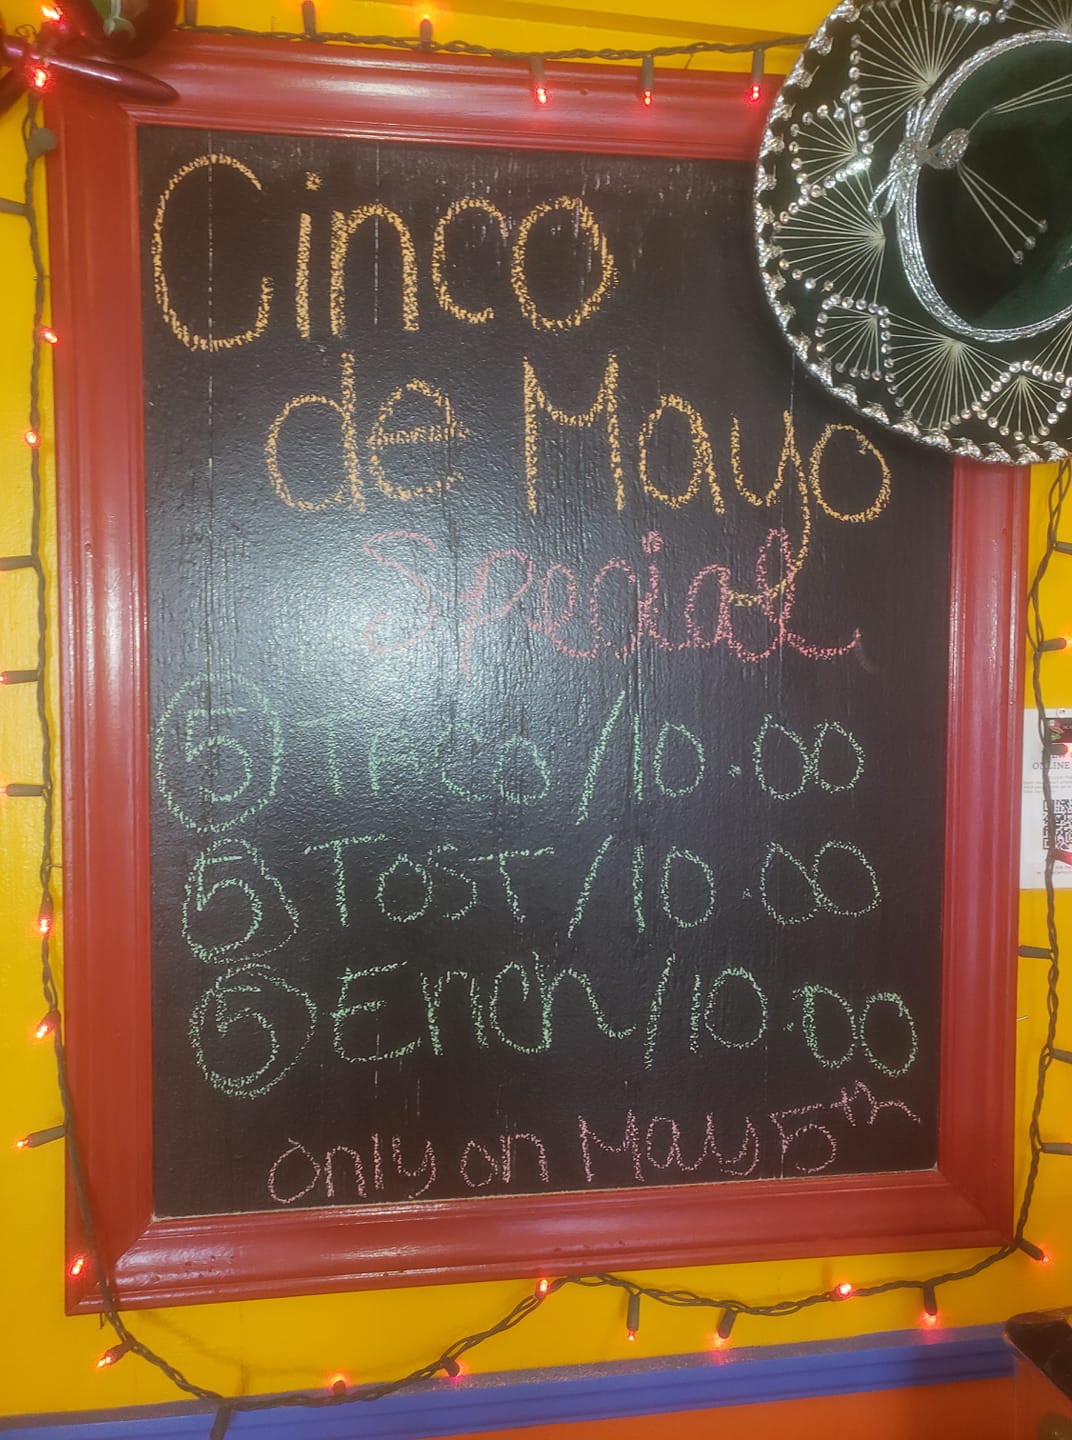 Cinco
de Mayo
Special
5 Taco/10.00
5 Tost/10.00
5 Ench/10.00
only on May 5th
ONLINE